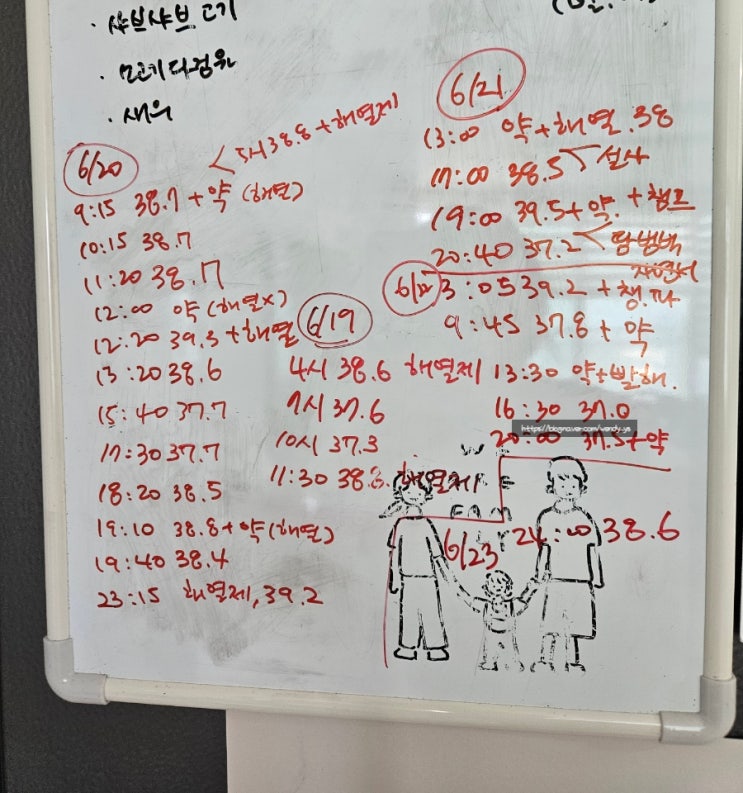 · 샤브샤브 고기
· 모기퇴치
· 새우
6/20
5시 38.8 + 해열제
9:15 38.7 + 약 (해열)
10:15 38.7
11:20 38.7
12:00 약 (해열x)
12:20 39.3 + 해열
13:20 38.6
15:40 37.7
17:30 37.7
18:20 38.5
19:10 38.8 + 약 (해열)
19:40 38.4
23:15 해열제, 39.2
6/19
4시 38.6 해열제
7시 37.6
10시 37.3
11:30 38.8 해열제
6/21
13:00 약 + 해열. 38
17:00 38.5 설사
19:00 39.5 + 약. + 챔프
20:40 37.2
6/22
3:05 39.2 + 챔.파
9:45 37.8 + 약
13:30 약+빨해.
16:30 37.0
https://blog.naver.com/wendy-ya
20:00 37.5 + 약
6/23
24:00 38.6
WE
ARE
FAM